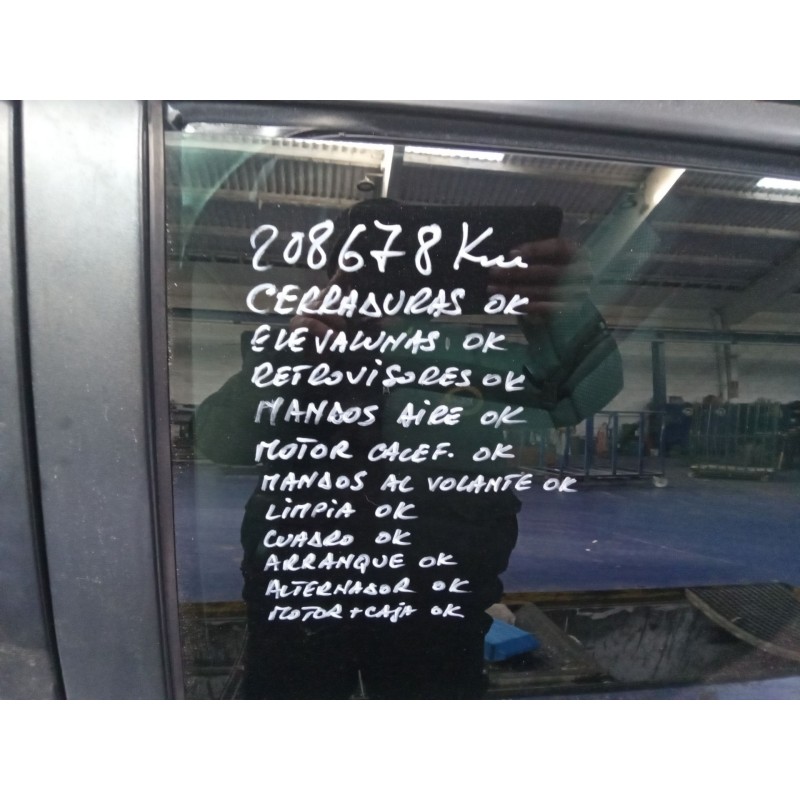 208678 Km
CERRADURAS OK
ELEVALUNAS OK
RETROVISORES OK
MANDOS AIRE OK
MOTOR CALEF. OK
MANDOS AL VOLANTE OK
LIMPIA OK
CUADRO OK
ARRANQUE OK
ALTERNADOR OK
MOTOR + CAJA OK